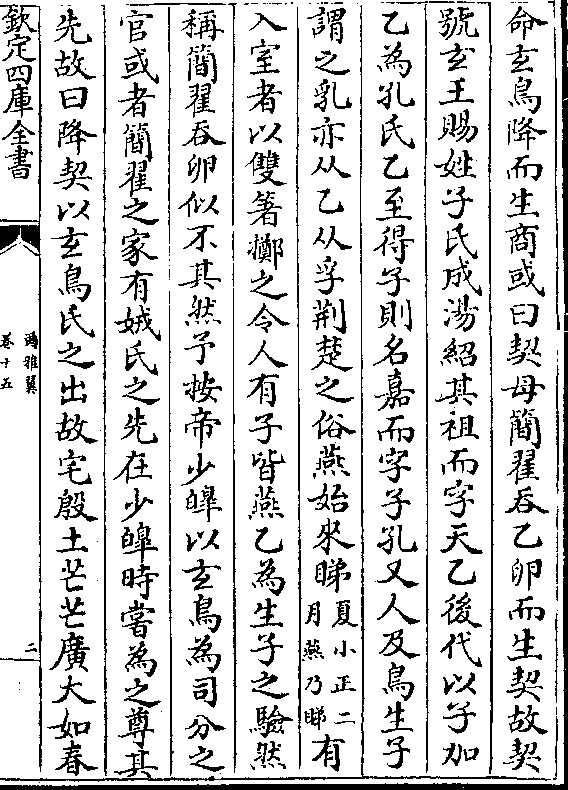 命玄鳥降而生商或曰契母簡翟吞乙卵而生契故契
號玄王賜姓子氏成湯紹其祖而字天乙後代以子加
乙為孔氏乙至得子則名嘉而字子孔又人及鳥生子
謂之乳亦从乙从孚荆楚之俗燕始來睇夏小正二月燕乃睇有
入室者以雙箸擲之令人有子皆燕乙為生子之驗然
稱簡翟吞卵似不其然予按帝少皥以玄鳥為司分之
官或者簡翟之家有娀氏之先在少皥時嘗為之尊其
先故曰降契以玄鳥氏之出故宅殷土芒芒廣大如春
欽定四庫全書
爾雅翼
卷十五
二